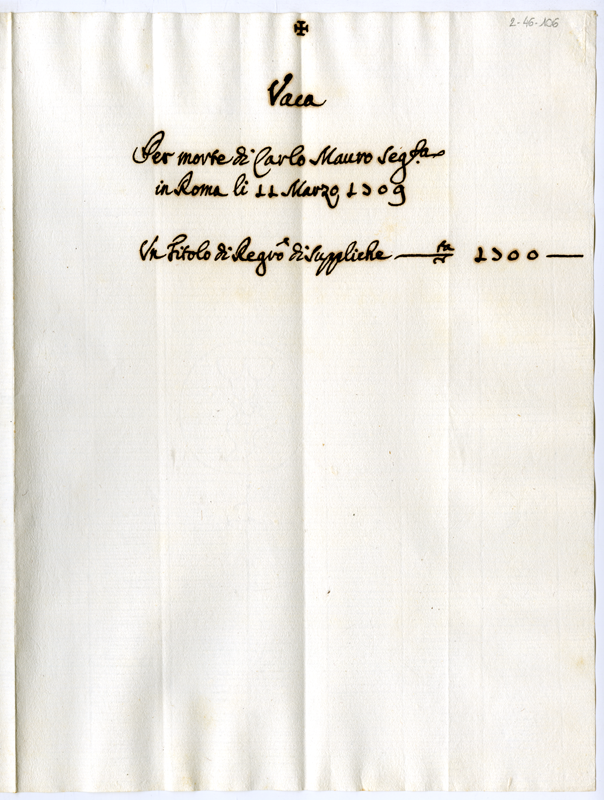 ✠
2-46-106
Vaca
Per morte di Carlo Mauro Seg.ta
in Roma li 11 Marzo 1709
Un Titolo di Regro di Suppliche — 1700 —